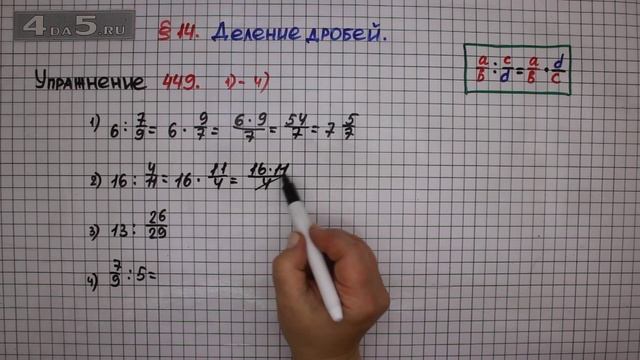 4DA5.RU
§ 14. Деление дробей.
a/b : c/d = a/b · d/c
Упражнение 449. 1) - 4)
1) 6 : 7/9 = 6 · 9/7 = 6 · 9/7 = 54/7 = 7 5/7
2) 16 : 4/11 = 16 · 11/4 = 16 · 11/4
3) 13 : 26/29
4) 7/9 : 5 =